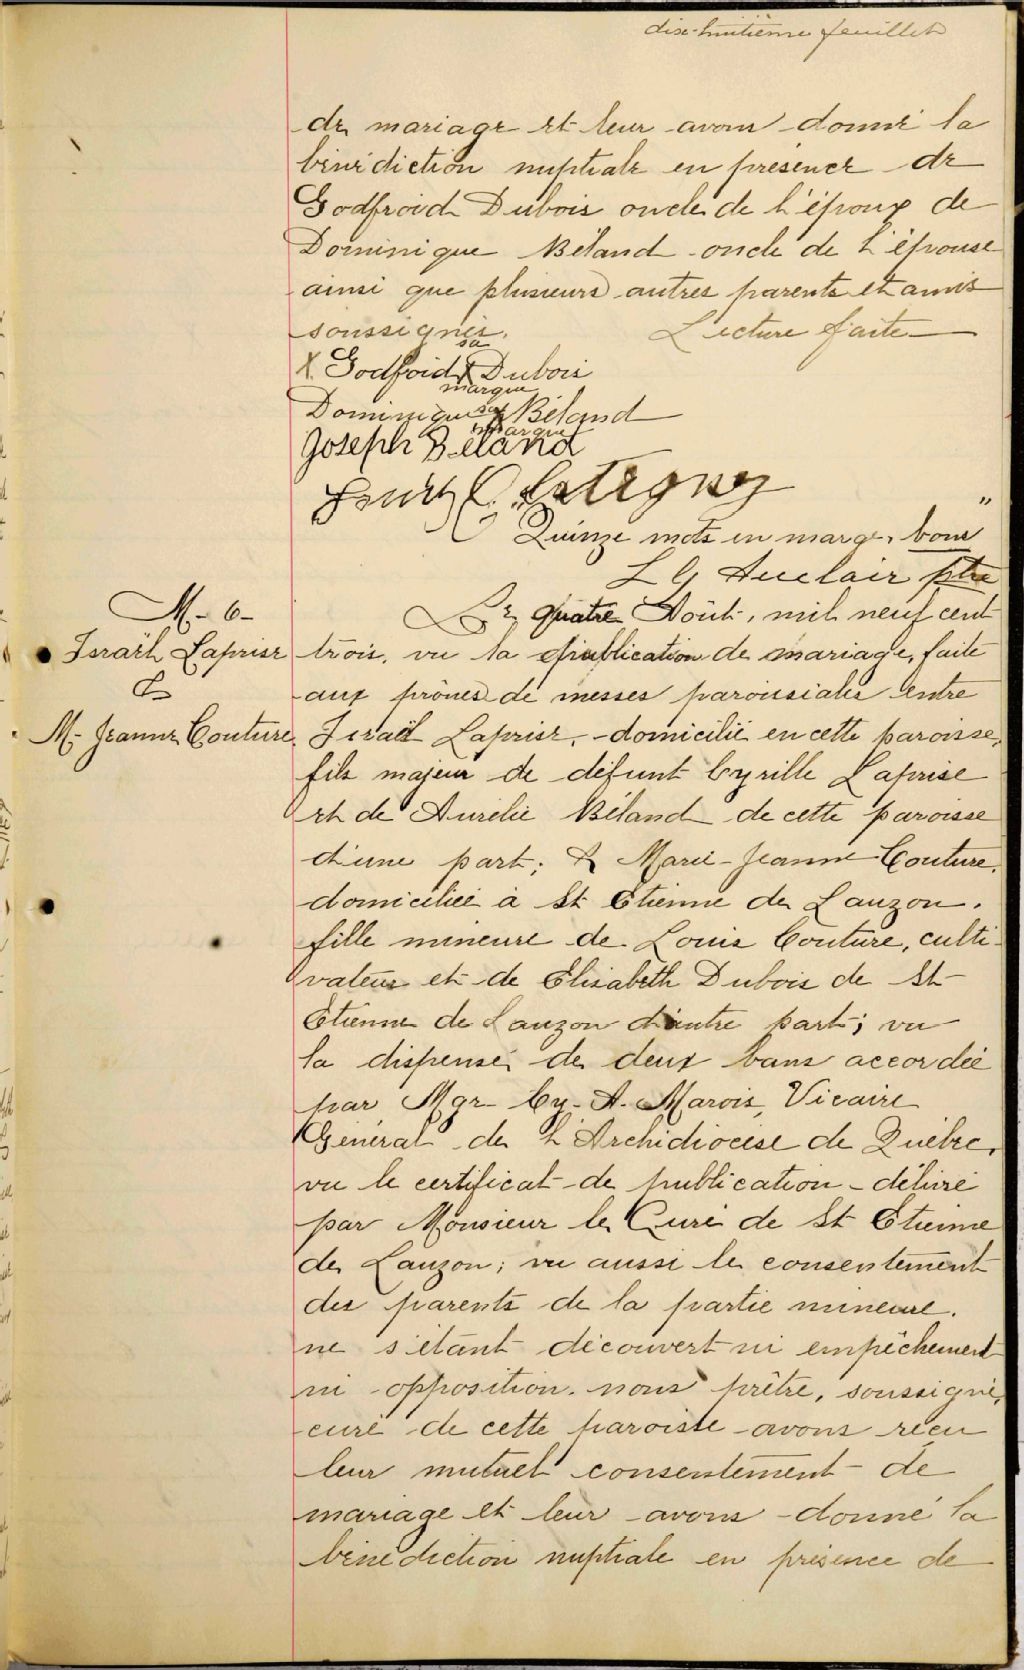 dix-huitième feuillet
de mariage et leur avons donné la
bénédiction nuptiale en présence de
Godfroid Dubois oncle de l'époux de
Dominique Béland oncle de l'épouse
ainsi que plusieurs autres parents et amis
soussignés. Lecture faite
sa
X Godfoid X Dubois
marque
Dominique sa X Béland
marque
Joseph Béland
Quinze mots en marge, bons
L G Auclair ptre
M-6-
Israël Laprise
&
M-Jeanne Couture
Le quatre Août, mil neuf cent
trois, vu la publication de mariage, faite
aux prônes de messes paroissiales entre
Israël Laprise, domicilié en cette paroisse,
fils majeur de défunt Cyrille Laprise
et de Aurélie Béland de cette paroisse
d'une part; & Marie-Jeanne Couture,
domiciliée à St Etienne de Lauzon,
fille mineure de Louis Couture, culti-
vateur et de Elisabeth Dubois de St-
Etienne de Lauzon d'autre part; vu
la dispense de deux bans accordée
par Mgr Cy. A. Marois, Vicaire
Général de l'Archidiocèse de Québec,
vu le certificat de publication délivré
par Monsieur le Curé de St Etienne
de Lauzon; vu aussi le consentement
des parents de la partie mineure.
ne s'étant découvert ni empêchement
ni opposition. nous prêtre, soussigné,
curé de cette paroisse avons reçu
leur mutuel consentement de
mariage et leur avons donné la
bénédiction nuptiale en présence de